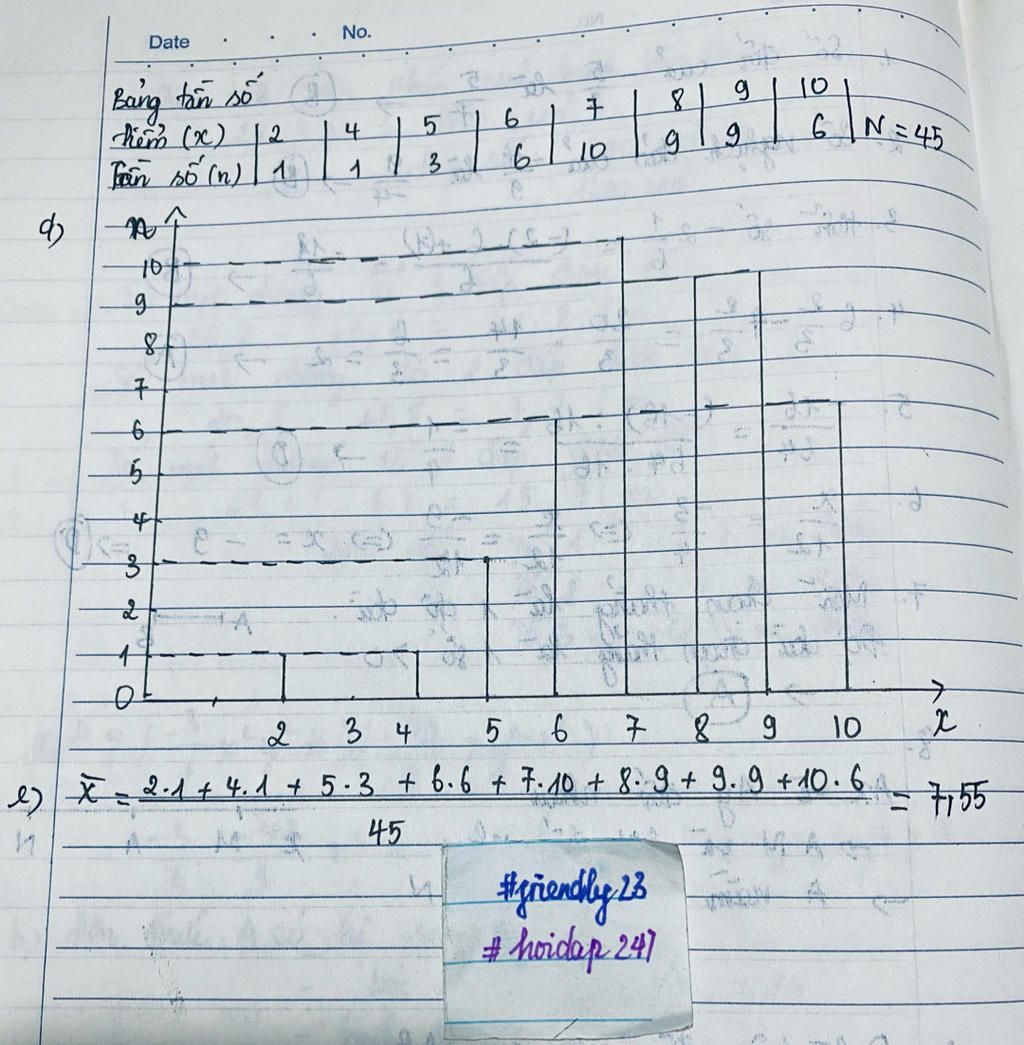 Date No.
Bảng tần số
Điểm (x) | 2 | 4 | 5 | 6 | 7 | 8 | 9 | 10 | N = 45
Tần số (n) | 1 | 1 | 3 | 6 | 10 | 9 | 9 | 6
d) n
10
9
8
7
6
5
4
3
2
1
0
2 3 4 5 6 7 8 9 10 x
e) x̄ = (2·1 + 4·1 + 5·3 + 6·6 + 7·10 + 8·9 + 9·9 + 10·6) = 7,55
45
#friendly23
#hoidap247